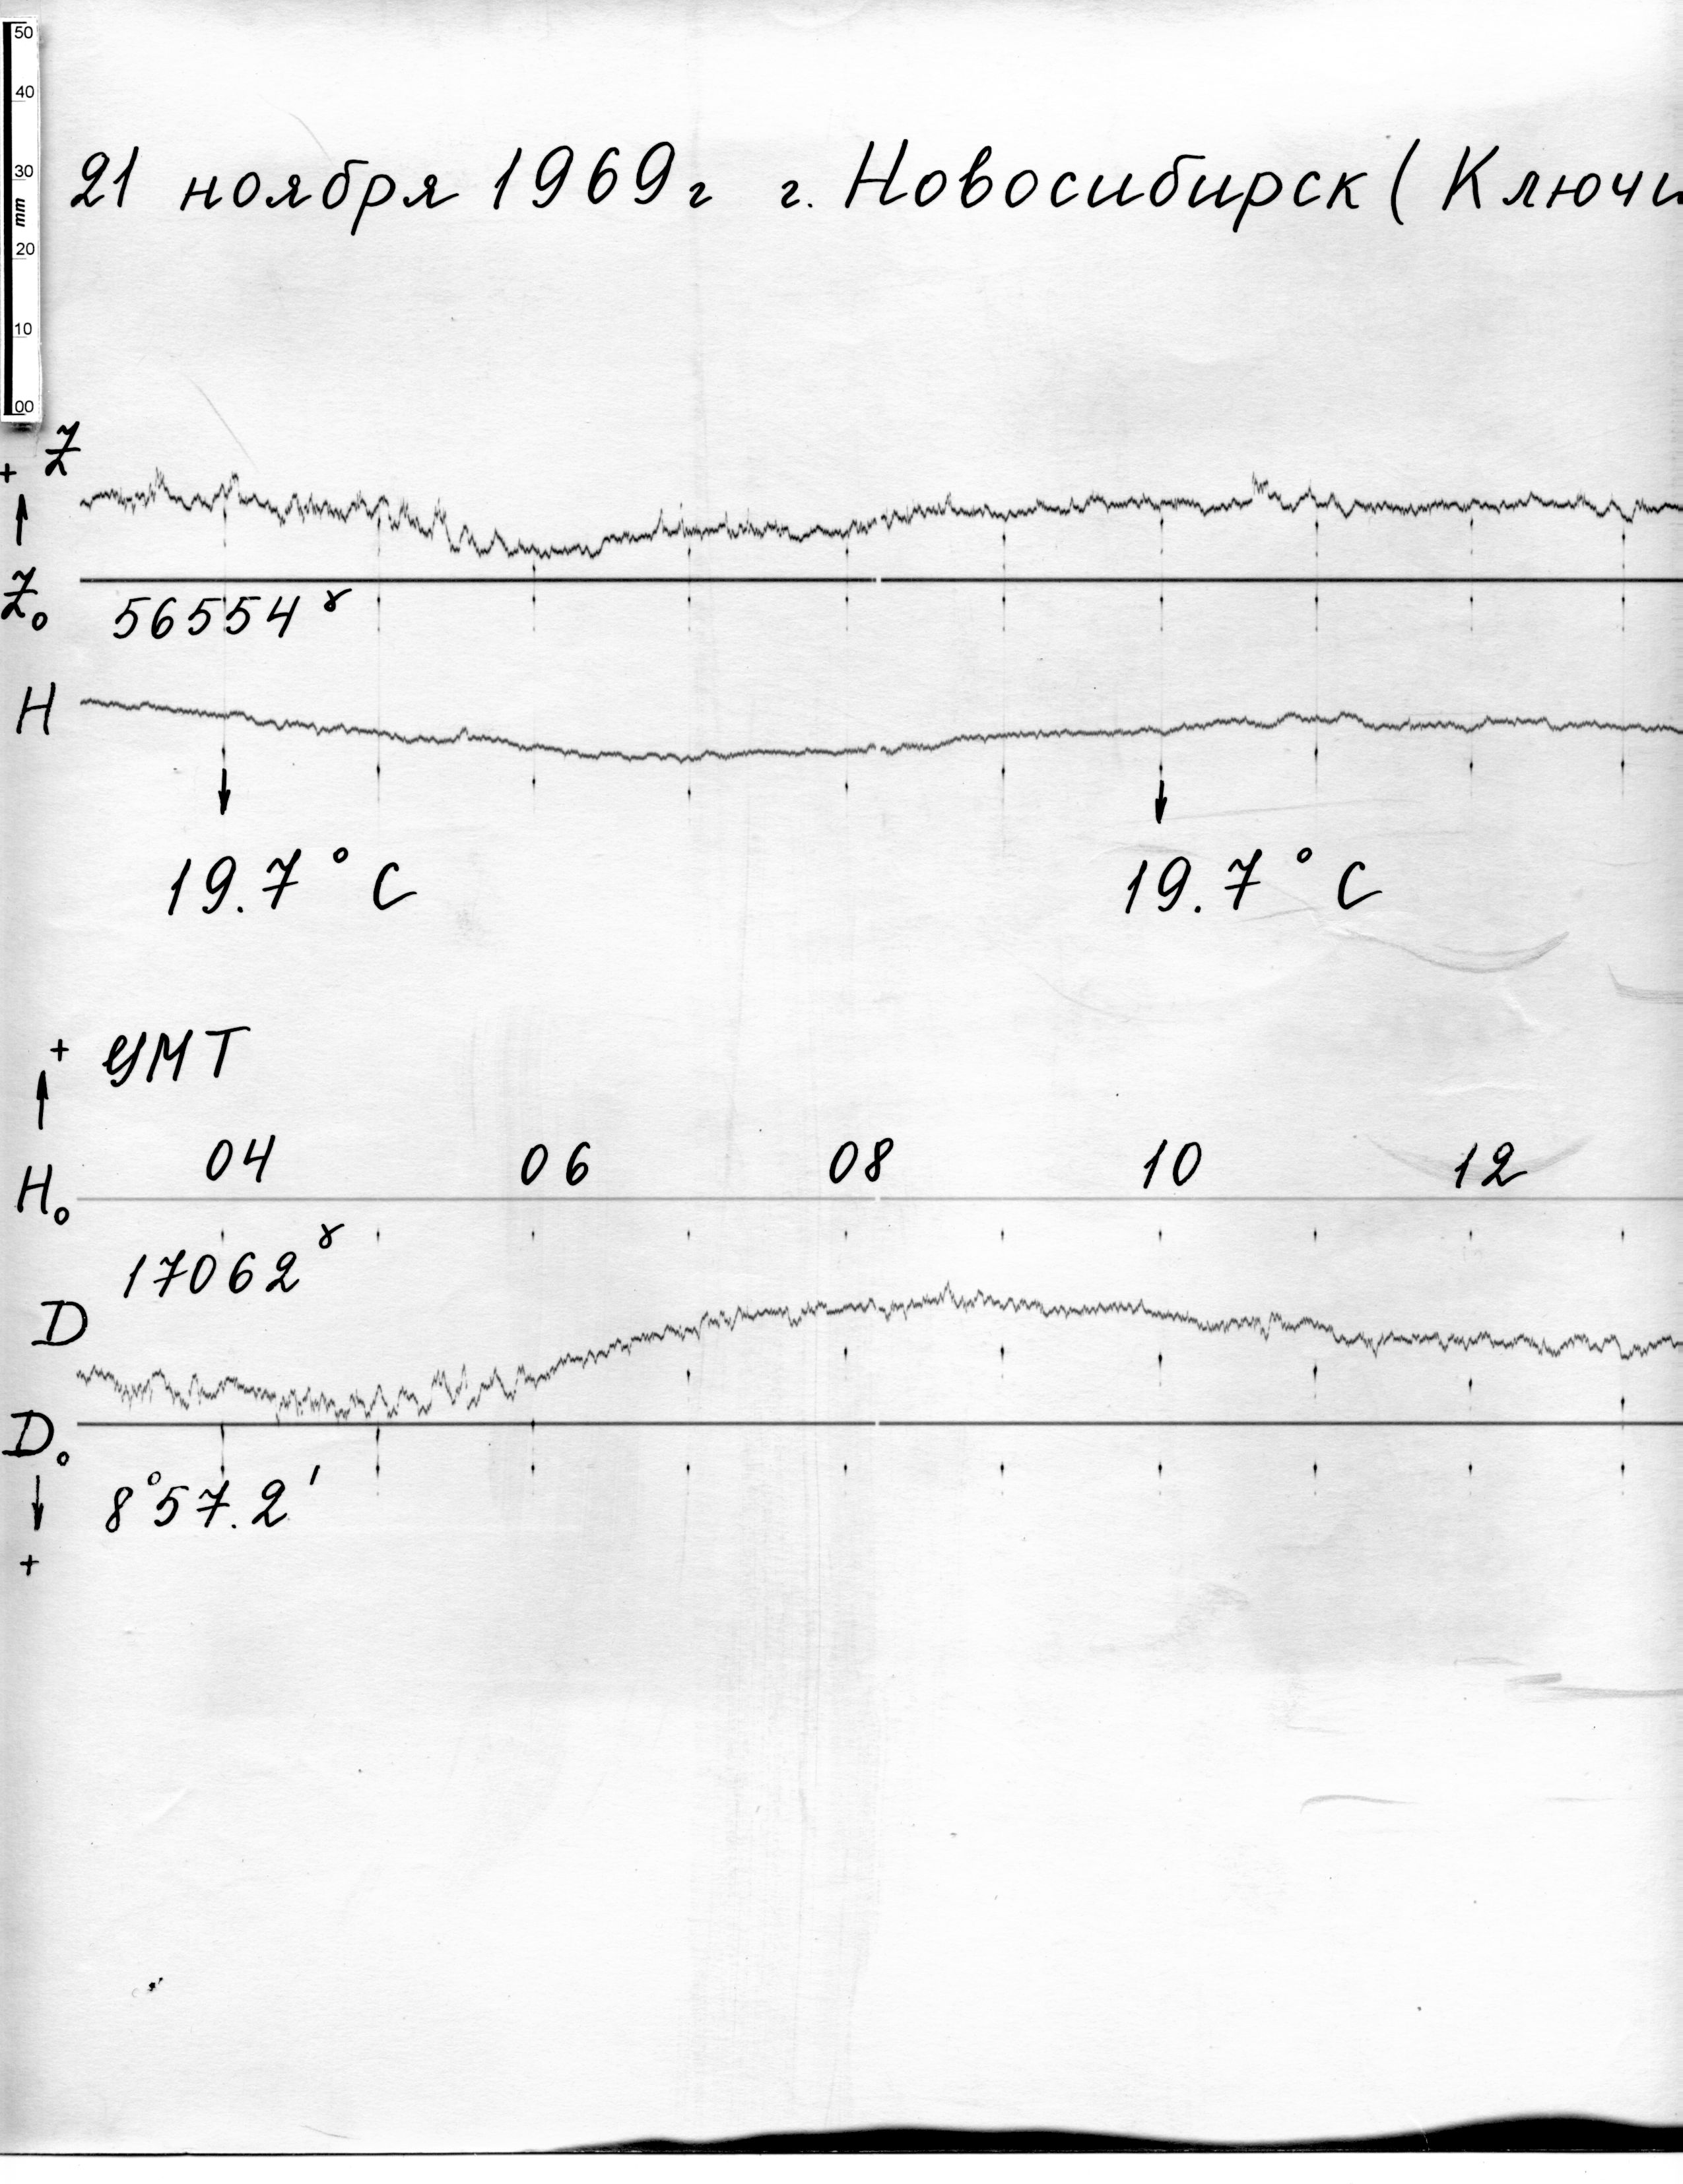 50
40
21 ноября 1969г г. Новосибирск ( Ключи
30
mm
20
10
00
+ Z
Z₀ 56554 ɣ
H
19.7 ° C 19.7 ° C
+ УМТ
04 06 08 10 12
H₀
17062 ɣ
D
D₀
8°57.2'
+